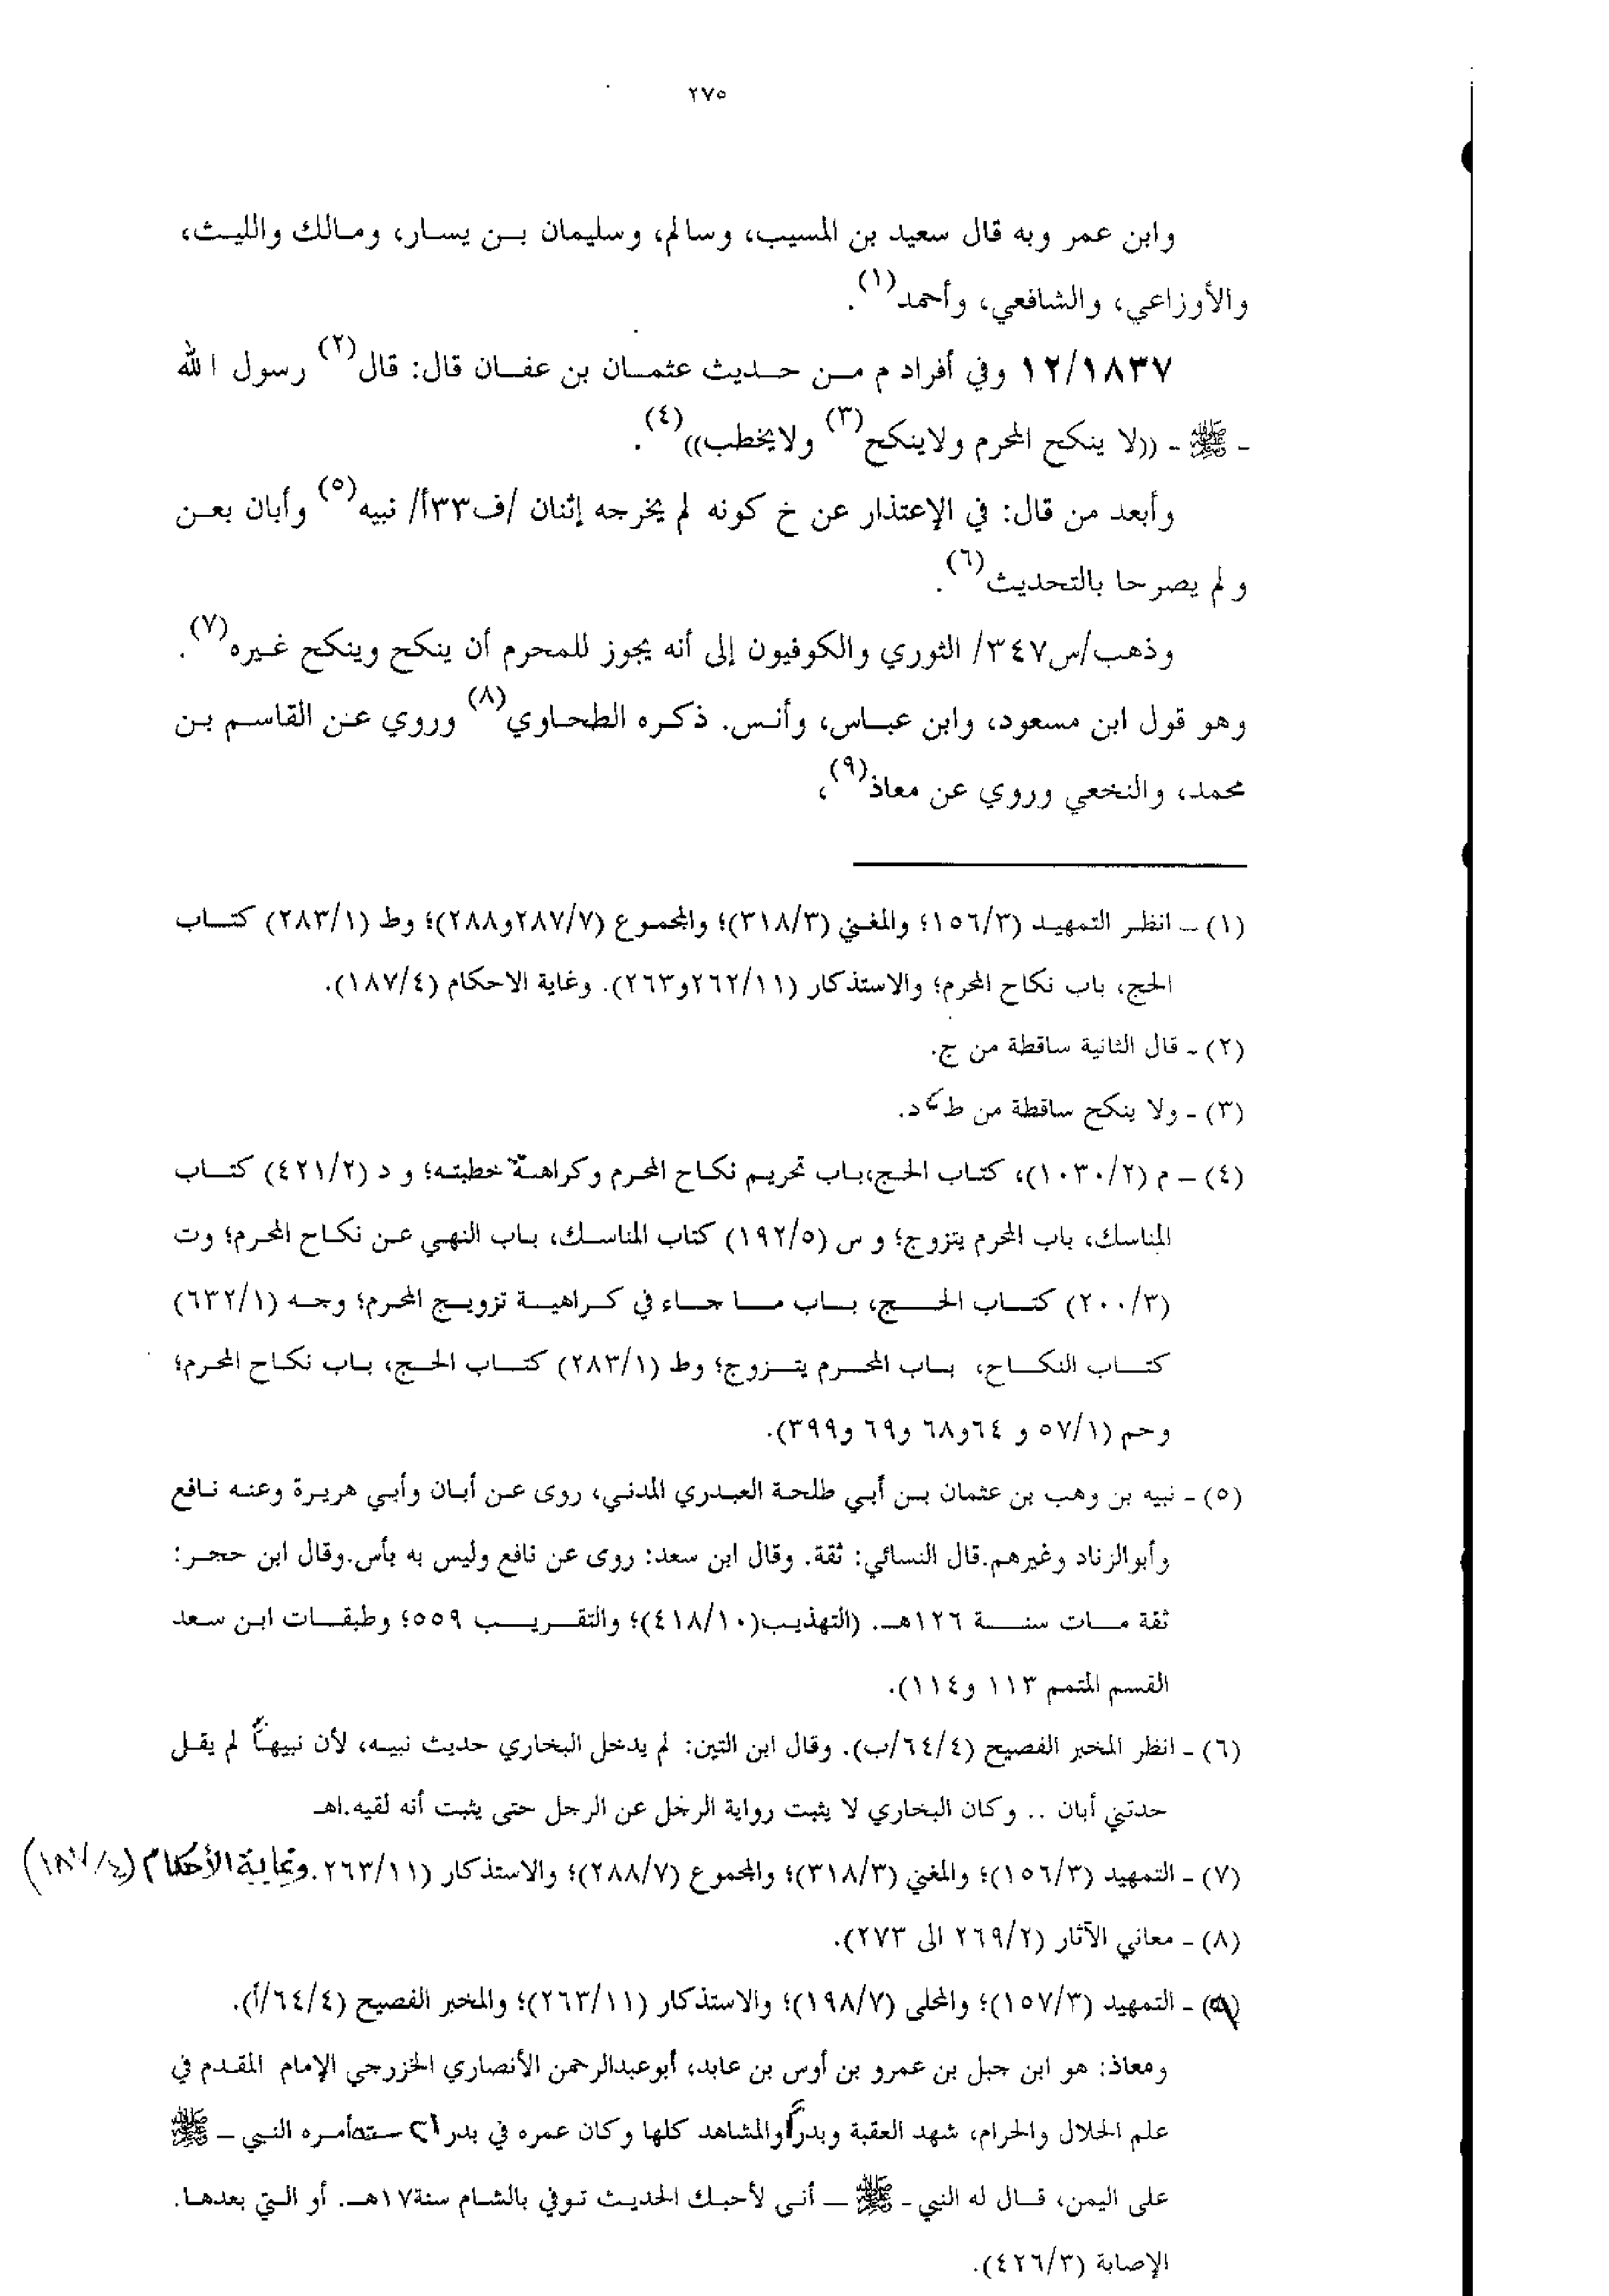 ٢٧٥
وابن عمر وبه قال سعيد بن المسيب، وسالم، وسليمان بـن يسـار، ومـالك والليـث،
والأوزاعي، والشافعي، وأحمد(١).
١٢/١٨٣٧ وفي أفراد م مـن حـديث عثمـان بن عفـان قال: قال(٢) رسول الله
- ﷺ - ((لا ينكح المحرم ولاينكح(٣) ولايخطب))(٤).
وأبعد من قال: في الإعتذار عن خ كونه لم يخرجه إثنان /ف٣٣أ/ نبيه(٥) وأبان بعـن
ولم يصرحا بالتحديث(٦).
وذهب/س٣٤٧/ الثوري والكوفيون إلى أنه يجوز للمحرم أن ينكح وينكح غـيره(٧).
وهو قول ابن مسعود، وابن عبـاس، وأنـس. ذكـره الطحـاوي(٨) وروي عـن القاسـم بـن
محمد، والنخعي وروي عن معاذ(٩)،
(١) – انظـر التمهيـد (١٥٦/٣؛ والمغـني (٣١٨/٣)؛ والمجمـوع (٢٨٧/٧و٢٨٨)؛ وط (٢٨٣/١) كتـاب
الحج، باب نكاح المحرم؛ والاستذكار (٢٦٢/١١و٢٦٣). وغاية الاحكام (١٨٧/٤).
(٢) - قال الثانية ساقطة من ج.
(٣) - ولا ينكح ساقطة من ط د.
(٤) – م (١٠٣٠/٢)، كتـاب الحـج،بـاب تحريـم نكـاح المحـرم وكراهـة خطبتـه؛ و د (٤٢١/٢) كتـاب
المناسك، باب المحرم يتزوج؛ و س (١٩٢/٥) كتاب المناسـك، بـاب النهـي عـن نكـاح المحـرم؛ وت
(٢٠٠/٣) كتـاب الحـج، بـاب مـا جـاء في كـراهيـة تزويـج المحـرم؛ وجـه (٦٣٢/١)
كتـاب النكـاح، بـاب المحـرم يتـزوج؛ وط (٢٨٣/١) كتـاب الحـج، بـاب نكـاح المحـرم؛
وحم (٥٧/١ و ٦٤و٦٨ و٦٩ و٣٩٩).
(٥) - نبيه بن وهب بن عثمان بـن أبي طلحـة العبـدري المدني، روى عـن أبـان وأبي هريـرة وعنـه نـافع
وأبوالزناد وغيرهم.قال النسائي: ثقة. وقال ابن سعد: روى عن نافع وليس به بأس.وقال ابن حجـر:
ثقة مـات سنـة ١٢٦هـ. (التهذيـب(٤١٨/١٠)؛ والتقريـب ٥٥٩؛ وطبقـات ابـن سـعد
القسم المتمم ١١٣ و١١٤).
(٦) - انظر المخبر الفصيح (٦٤/٤/ب). وقال ابن التين: لم يدخل البخاري حديث نبيـه، لأن نبيهـاً لم يقـل
حدثني أبان .. وكان البخاري لا يثبت رواية الرجل عن الرجل حتى يثبت أنه لقيه.اهـ
(٧) - التمهيد (١٥٦/٣)؛ والمغني (٣١٨/٣)؛ والمجموع (٢٨٨/٧)؛ والاستذكار (٢٦٣/١١. وغاية الأحكام (١٨٧/٤)
(٨) - معاني الآثار (٢٦٩/٢ الى ٢٧٣).
(٩) - التمهيد (١٥٧/٣)؛ والمحلى (١٩٨/٧)؛ والاستذكار (٢٦٣/١١)؛ والمخبر الفصيح (٦٤/٤/أ).
ومعاذ: هو ابن جبل بن عمرو بن أوس بن عابد، أبوعبدالرحمن الأنصاري الخزرجي الإمام المقـدم في
علم الحلال والحرام، شهد العقبة وبدراً والمشاهد كلها وكان عمره في بدر ٢١ سنة أمـره النبي – ﷺ
على اليمن، قـال له النبي - ﷺ – أنـي لأحبـك الحديـث تـوفي بالشـام سنة١٧هـ. أو الـتي بعدهـا.
الإصابة (٤٢٦/٣).